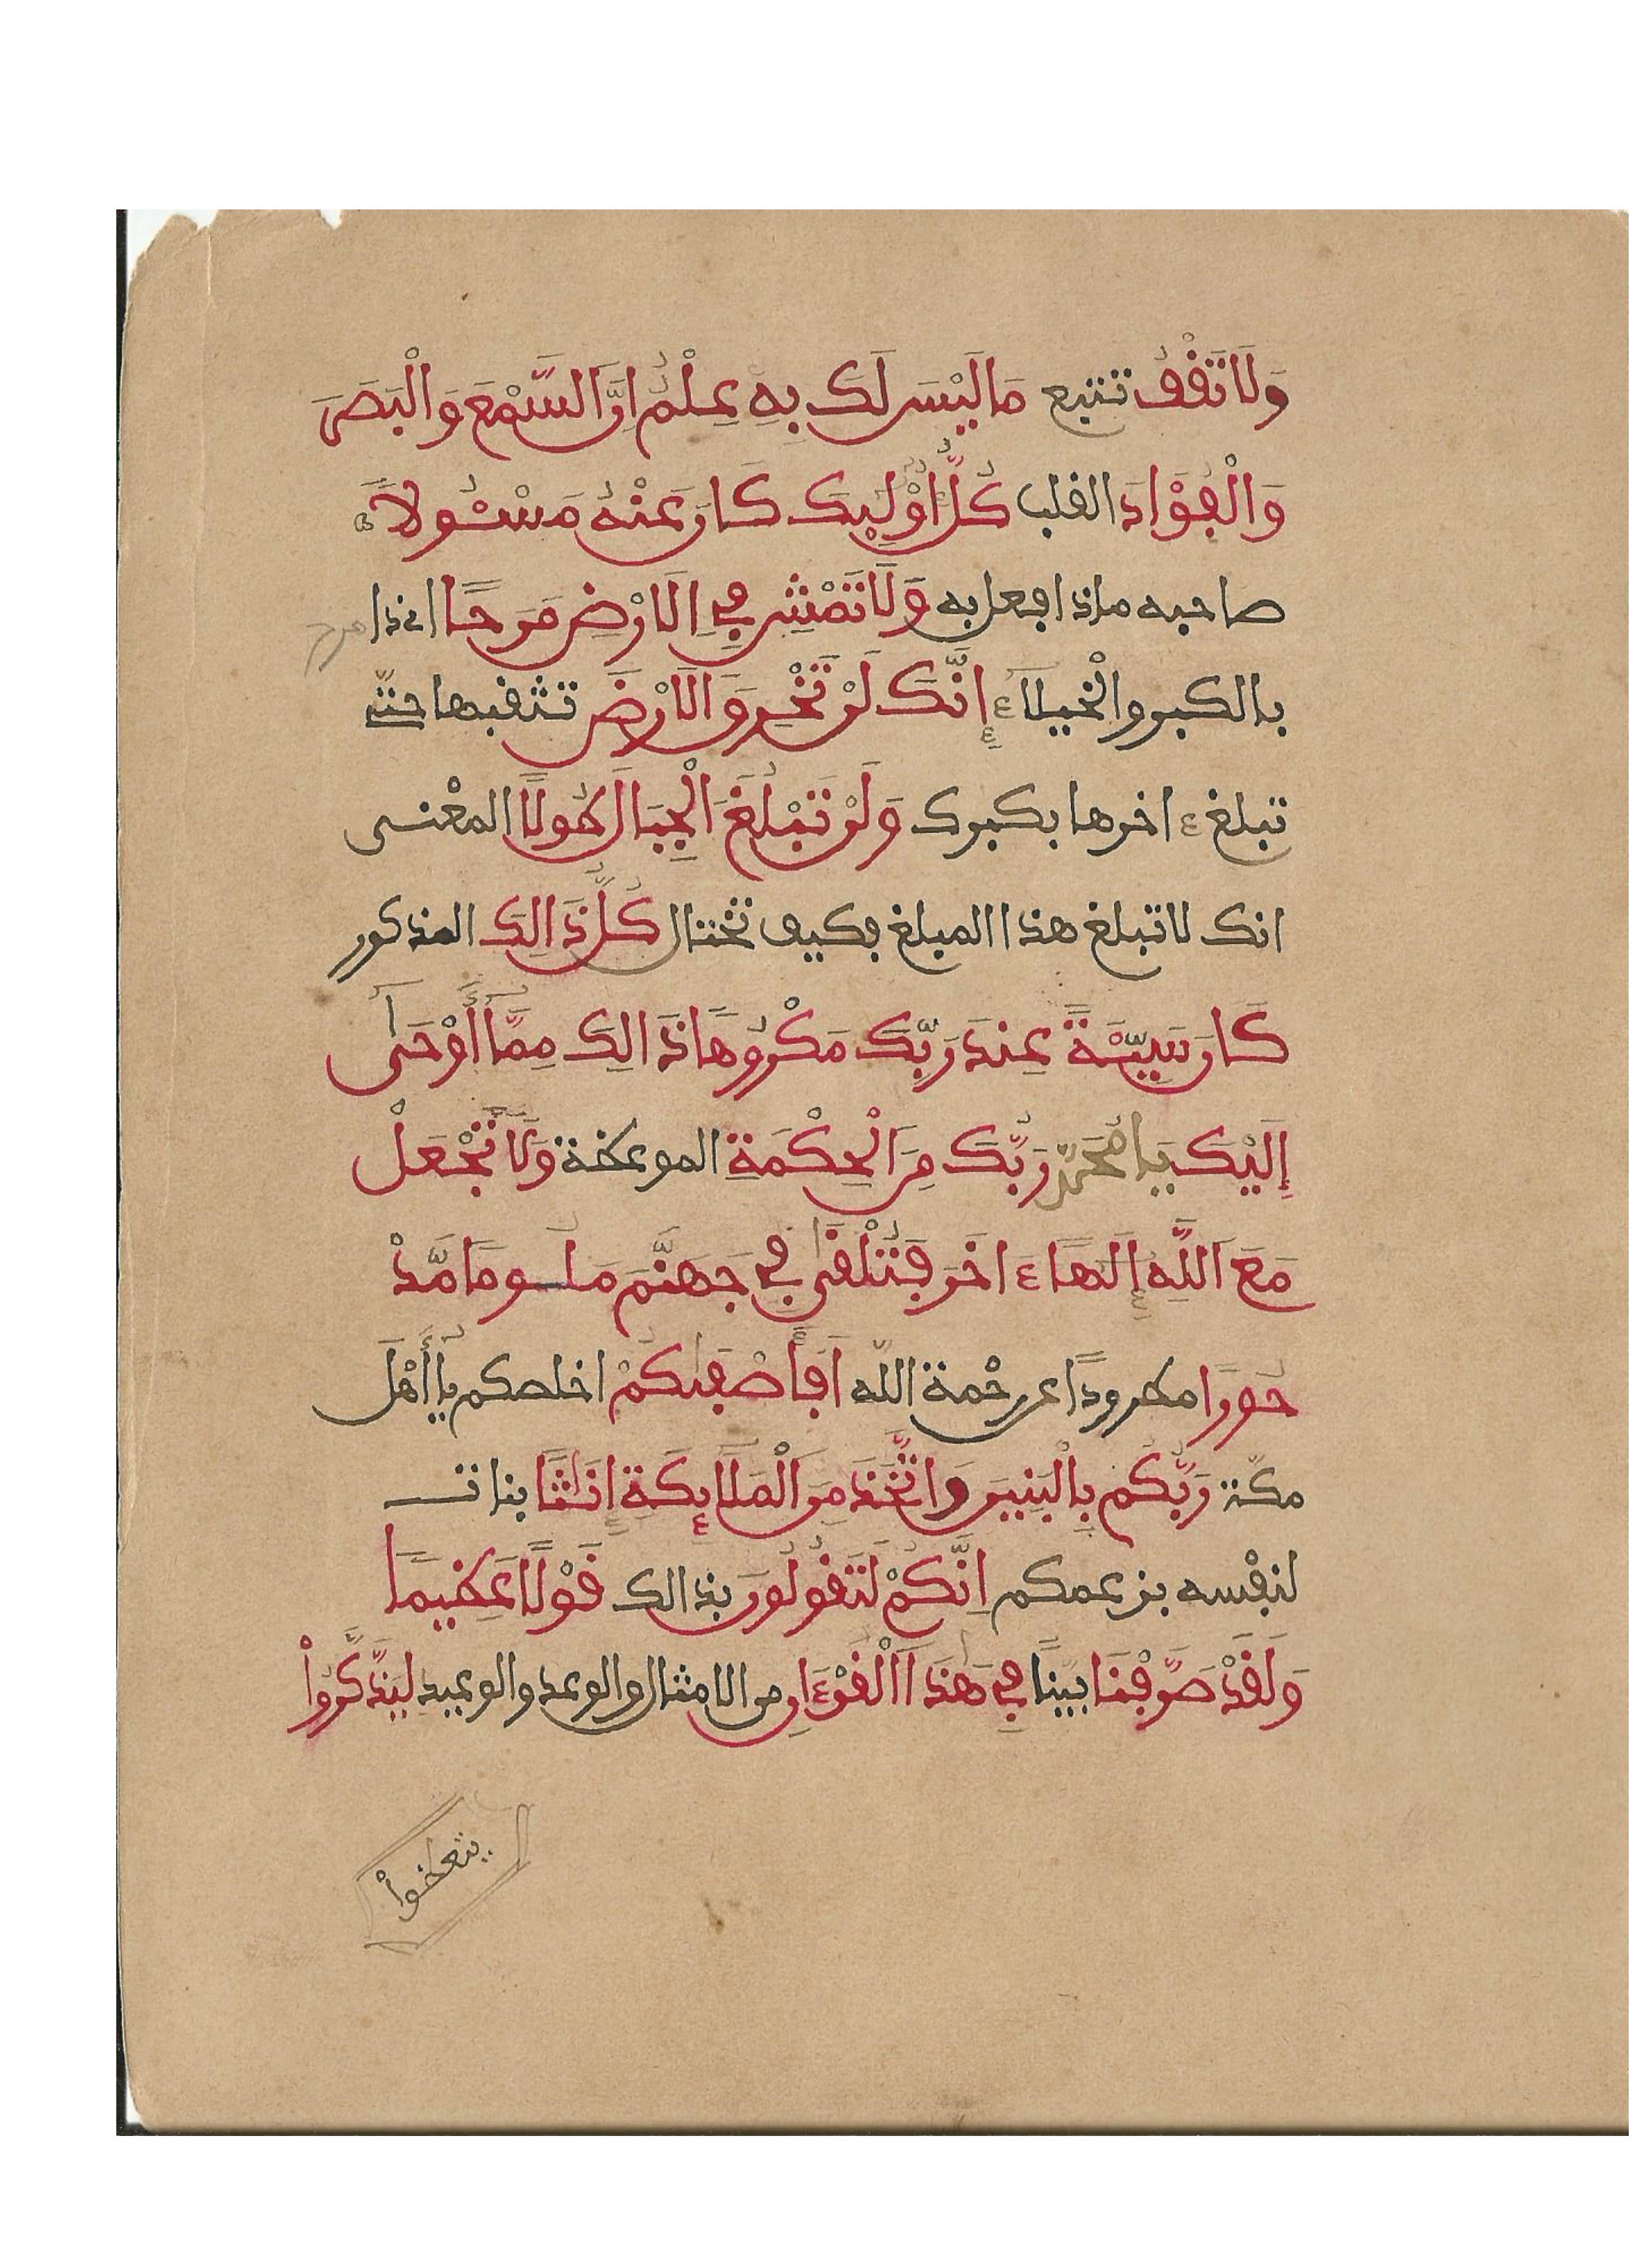 وَلَا تَقْفُ تتبع مَا لَيْسَ لَكَ بِهِ عِلْمٌ اِنَّ اَلسَّمْعَ وَالْبَصَرَ
وَالْفُؤَادَ القلب كُلُّ أُوْلَٰئِكَ كَانَ عَنْهُ مَسْـُٔولًا
صاحبه ماذا فعل به وَلَا تَمْشِ فِي اِلَارْضِ مَرَحًا اي ذا مرح
بالكبر والْخيلاء إِنَّكَ لَن تَخْرِقَ اَلَارْضَ تثقبها حتى
تبلغ ءاخرها بكبرك وَلَن تَبْلُغَ اَلْجِبَالَ طُولًا المعْنى
انك لا تبلغ هذا المبلغ فكيف تختال كُلُّ ذَالِكَ المذكور
كَانَ سَيِّئَةً عِندَ رَبِّكَ مَكْرُوهًا ذَالِكَ مِمَّا أَوْحَىٰ
إِلَيْكَ يا مُحَمَّد رَبُّكَ مِنَ اَلْحِكْمَةِ الموعظة وَلَا تَجْعَلْ
مَعَ اَللَّهِ إِلَٰهًا ءَاخَرَ فَتُلْقَىٰ فِي جَهَنَّمَ مَلُومًا مَّدْ
حُورًا مطرودًا عن رحْمة اللّه اَفَأَصْفَىٰكُمْ اخلصكم يا أَهْلَ
مكّة رَبُّكُم بِالْبَنِينَ وَاتَّخَذَ مِنَ اَلْمَلَائِكَةِ إِنَاثًا بنات
لنفْسه بزعمكم اِنَّكُمْ لَتَقُولُونَ بذالك قَوْلًا عَظِيمًا
وَلَقَدْ صَرَّفْنَا بينّا فِي هَٰذَا اَلْقُرْءَانِ من الامثال والوعد والوعيد لِيَذَّكَّرُواْ
يتعظواْ